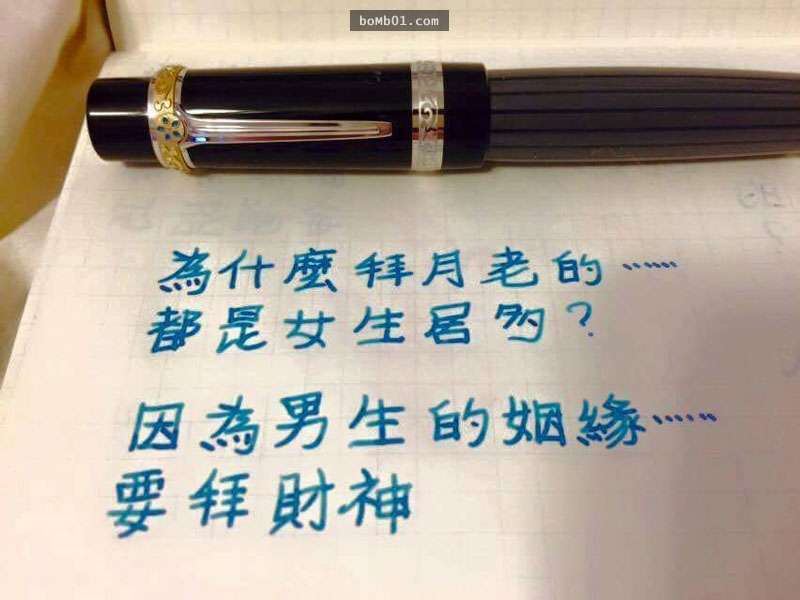 boMb01.com
為什麼拜月老的……
都是女生居多？
因為男生的姻緣……
要拜財神